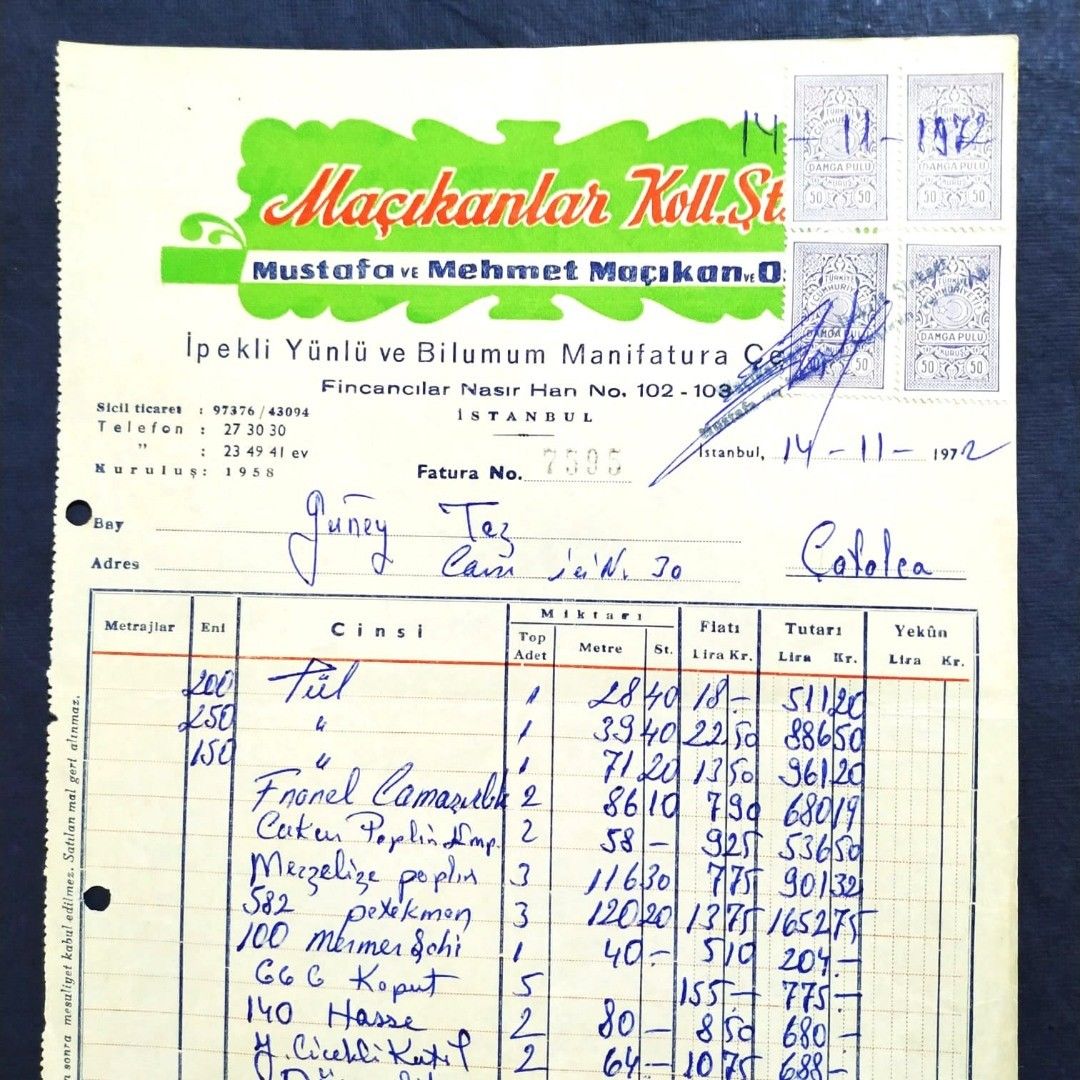 14 - 11 - 1972
Maçıkanlar Koll. Şt.
Mustafa VE Mehmet Maçıkan VE O
TÜRKİYE CUMHURİYETİ DAMGA PULU 50 KURUŞ 50
TÜRKİYE CUMHURİYETİ DAMGA PULU 50 KURUŞ 50
TÜRKİYE CUMHURİYETİ DAMGA PULU 50 KURUŞ 50
TÜRKİYE CUMHURİYETİ DAMGA PULU 50 KURUŞ 50
İpekli Yünlü ve Bilumum Manifatura Çe
Fincancılar Nasır Han No. 102 - 103
İSTANBUL
Sicil ticaret : 97376 / 43094
Telefon : 27 30 30
" : 23 49 41 ev
Kuruluş : 1958
Fatura No. 7595
İstanbul, 14 - 11 - 1972
Bay Güney Taz
Adres Cami içi N. 30 Çatalca
Metrajlar Eni Cinsi Miktarı Fiatı Tutarı Yekûn
Top Adet Metre St. Lira Kr. Lira Kr. Lira Kr.
200 Tül 1 28 40 18 - 511 20
250 " 1 39 40 22 50 886 50
150 " 1 71 20 13 50 961 20
Fnanel Camaşırlık 2 86 10 7 90 680 19
Poplin Emp. 2 58 - 9 25 536 50
Mezzelize poplin 3 116 30 7 75 901 32
582 3 120 20 13 75 1652 75
100 mermerşahi 1 40 - 5 10 204 -
G6G Kaput 5 155 - 775 -
140 Hasse 2 80 - 8 50 680 -
Y. Cicekli 2 64 - 10 75 688 -
n sonra mesuliyet kabul edilmez. Satılan mal geri alınmaz.